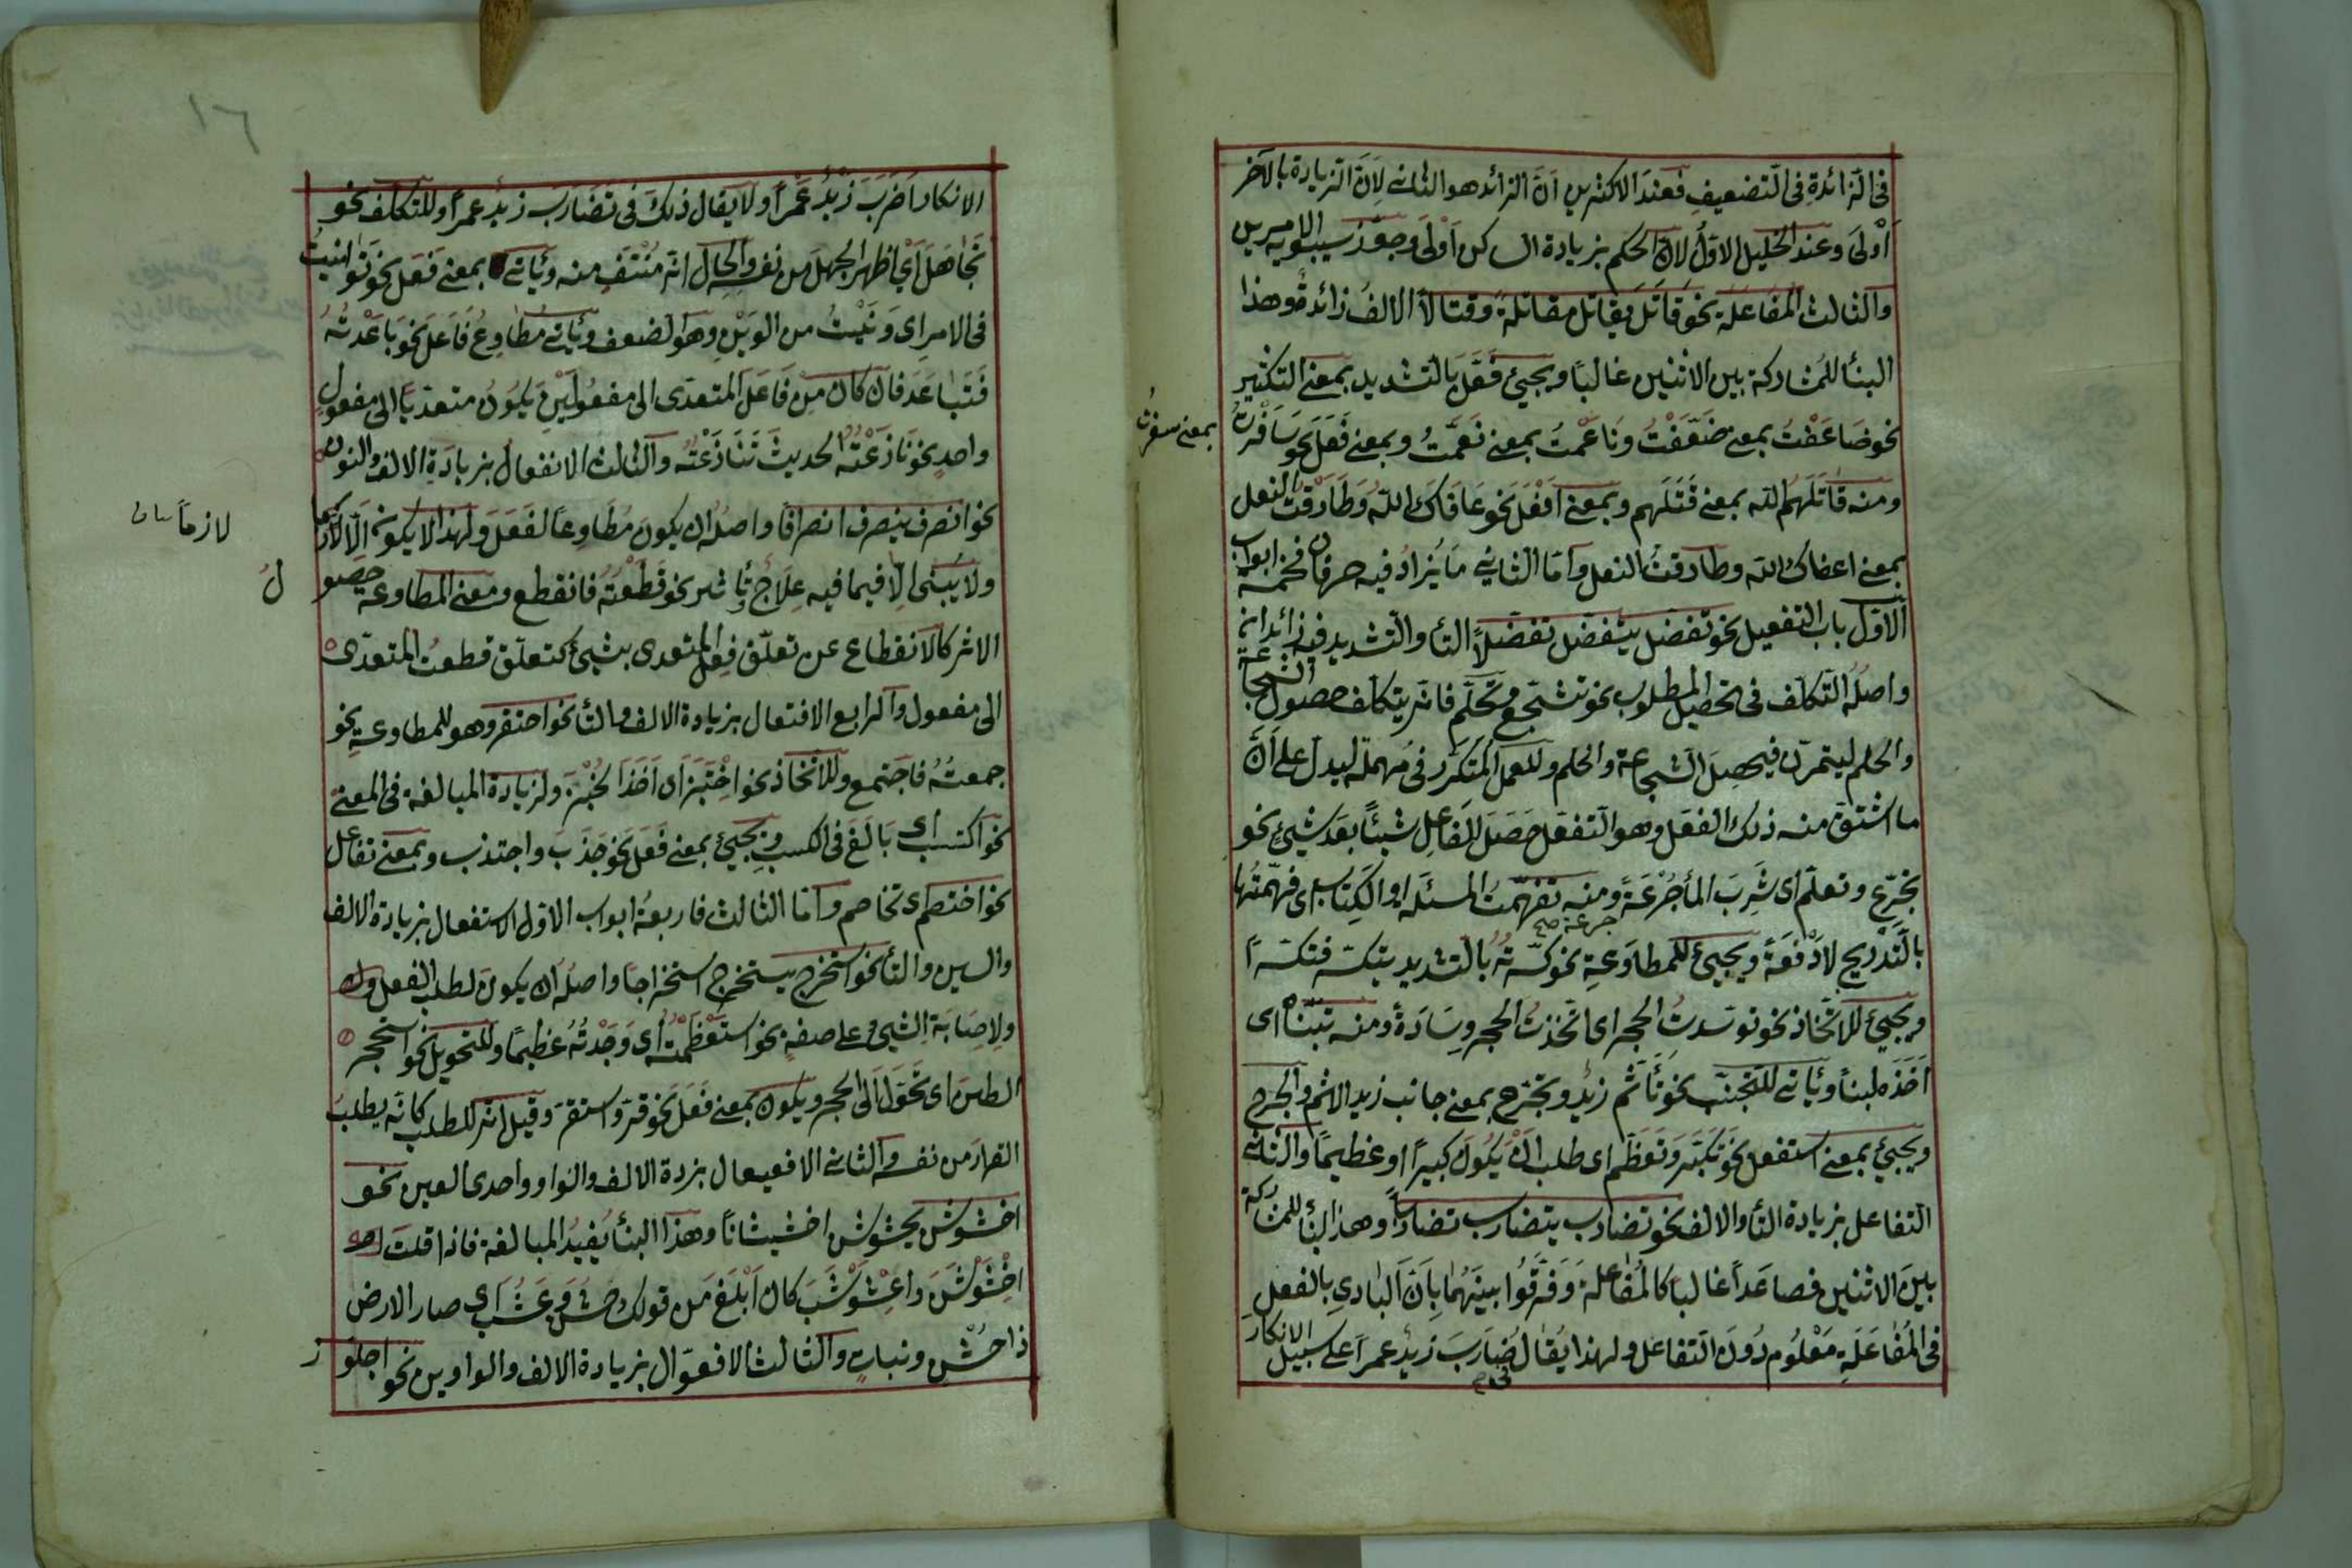 فى الزائدة فى التضعيف فعند الاكثرين انّ الزائد هو الثانى لانّ الزيادة بالآخر
أَوْلَى وعند الخليل الاوّل لانّ الحكم بزيادة الساكن اَوْلَى وجوّز سيبويه الامرين
والثالث المفاعلة نحو قَاتَلَ يقاتل مقاتلةً وقتالاً الالف زائدة وهذا
البنأ للمشاركة بين الاثنين غالبًا ويجيئ فَعَّلَ بالتشديد بمعنى التكثير
نحو ضَاعَفْتُ بمعنى ضَعَّفْتُ ونَاعَمْتُ بمعنى نَعَّمْتُ وبمعنى فَعَلَ نحو سَافَرْتُ
بمعنى سفرتُ
ومنه قاتَلَهم الله بمعنى قَتَلَهم وبمعنى اَفْعَلَ نحو عَافَاكَ الله وطَارَقْتُ النعل
بمعنى اعفاك الله وطارقت النعل وامّا الثانى مَا يُزادُ فيه حرفان فخمسة ابواب
الاوّل باب التفعيل نحو تفضّل يتفضّل تفضّلاً التأ والتشديد فيه زائدان
واصلُه التكلّف فى تحصيل المطلوب نحو تشجّع وتحلّم فانّه يتكلّف حصول الشجاعة
والحلم ليتمرّن فيحصل الشجاعة والحلم وللعمل المتكرّر فى مُهملَه ليدلّ على اَنَّ
ما اشتقّ منه ذلك الفعل وهو التفعّل حَصَلَ للفاعِل شيئًا بعد شيئٍ نحو
تجرّع وتعلّم اى شَرِبَ المأ جُرْعَةً ومنه تفهّمتُ المسئلة او الكتاب اى فهّمتُها
جرعة صح
بالتدريج لا دَفْعَةً ويجيئ للمطاوَعةِ نحو كسّرتُه بالتشديد يتكسّر فتكسّرًا
ويجيئ للاتّخاذ نحو توسّدتُ الحجر اى اتخذتُ الحجر وِسَادَةً ومنه تبنّاه اى
اَخَذَه ابنأ ويأتى للتجنّب نحو تأثّم زيدٌ وتجرّح بمعنى جانب زيد الاثم والجرح
ويجيئ بمعنى استفعل نحو تكبّر وتعظّم اى طلب اَنْ يَكُونَ كبيرًا او عظيمًا والثانى
التفاعل بزيادة التأ والالف نحو تضارب يتضارب تضاربًا وهذا البنأ للمشاركة
بين الاثنين فصاعدًا غالبا كالمُفاعلة وَفَرَّقُوا بينَهُما بِاَنَّ البادى بالفعل
فى المُفاعَلَةِ مَعْلُوم دُونَ التفاعل ولهذا يُقالُ ضَارَبَ زيدٌ عمراً على سبيل الانكار
١٦
الانكار اَضَرَبَ زَيْدٌ عَمْرًا ولا يقال ذلك فى تضَارَبَ زيدٌ عمرًا وللتكلّف نحو
تَجَاهَلَ اَىْ اظهر الجهلَ من نفسه والحال انّه مُنْتَفٍ منه ويأتى بمعنى فَعَلَ نحو تَوانيتُ
فى الامر اى وَنَيْتُ من الوَنْىِ وهو الضعف ويأتى مُطاوِعُ فَاعَلَ نحو بَاعَدْتُهُ
فَتَبَاعَدَ فان كان مِنْ فَاعَلَ المتعدّى الى مفعُولَيْنِ يَكونُ متعدّيًا الى مفعولٍ
واحدٍ نحو نَازَعْتُه الحديثَ تَنَازَعْتُه والثالث الانفعال بزيادة الالف والنون
نحو انصرف ينصرف انصرافًا واصلُه ان يكون مُطاوِعًا لفَعَلَ ولهذا لا يكون الّا
لازمًا
ولا يُبْنَى الّا فيما فيه عِلَاجٌ وتأثير نحو قَطَعْتُه فانقطع ومعنى المطاوعة حصو
لُ
الاثر كالانقطاع عن تعلّق فِعْل المتعدى بشيئٍ كتعلّق قطعتُ المتعدّى
الى مفعول والرابع الافتعال بزيادة الالف والتأ نحو احتقر وهو للمطاوعة نحو
جمعتُهُ فاجتمع وللاتخاذ نحو اخْتَبَزَ اى اَخَذَ الخُبْزَ ولزيادة المبالغة فى المعنى
نحو اكتسب اى بَالَغَ فى الكسب ويجيئ بمعنى فَعَلَ نحو جَذَبَ واجتذب وبمعنى تفاعل
نحو اختصم اى تخاصم وامّا الثالث فاربعةُ ابواب الاوّل الاستفعال بزيادة الالف
والسين والتأ نحو استخرج يستخرج استخراجًا واصلُه ان يكون لطلب الفعل
ولاِصَابَةِ الشيئ على صفةٍ نحو استعْظَمْتُه اى وَجَدْتُهُ عَظِيمًا وللتحويل نحو استحجر
الطين اى تحَوَّلَ الى الحجر ويكون بمعنى فَعَلَ نحو قَرَّ واستقرّ وقيل انّه للطلب كانّه يطلبُ
القرارَ من نفسه والثانى الافعيعال بزيادة الالف والواو واحدى العين نحو
اخشوشن يخشوشن اخشيشانًا وهذا البنأ يُفيدُ المبالغة فاذا قلتَ
اخْشَوْشَنَ واعْشَوْشَبَ كان اَبْلَغَ من قولك خَشُنَ وعَشُبَ اى صار الارض
ذا خُشْنٍ ونباتٍ والثالث الافعوّال بزيادة الالف والواوين نحو اجلوّ
ز